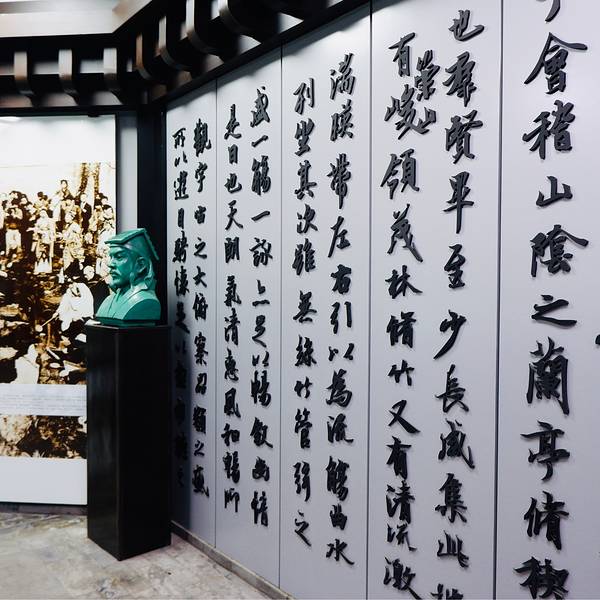 會稽山陰之蘭亭脩稧
也羣賢畢至少長咸集此
有崇山峻領茂林脩竹又有清流激
湍暎帶左右引以為流觴曲水
列坐其次雖無絲竹管弦之
盛一觴一詠亦足以暢敘幽情
是日也天朗氣清惠風和暢仰
觀宇宙之大俯察品類之盛
所以遊目騁懷足以極視聽之